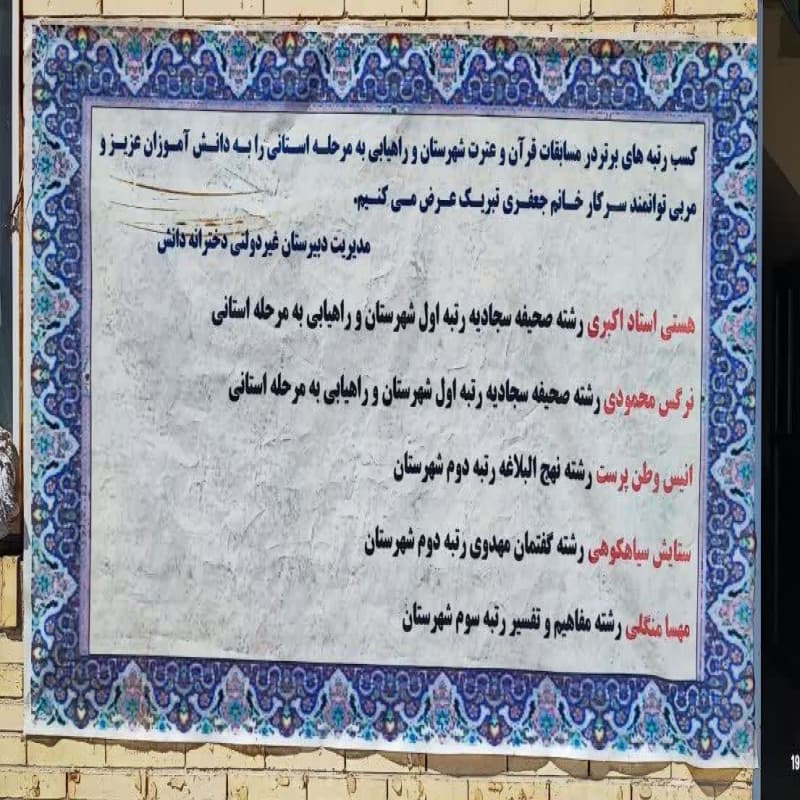 کسب رتبه های برتر در مسابقات قرآن و عترت شهرستان و راهیابی به مرحله استانی را به دانش آموزان عزیز و
مربی توانمند سرکار خانم جعفری تبریک عرض می کنیم.
مدیریت دبیرستان غیردولتی دخترانه دانش
هستی استاد اکبری رشته صحیفه سجادیه رتبه اول شهرستان و راهیابی به مرحله استانی
نرگس محمودی رشته صحیفه سجادیه رتبه اول شهرستان و راهیابی به مرحله استانی
انیس وطن پرست رشته نهج البلاغه رتبه دوم شهرستان
ستایش سیاهکوهی رشته گفتمان مهدوی رتبه دوم شهرستان
مهسا منگلی رشته مفاهیم و تفسیر رتبه سوم شهرستان
19